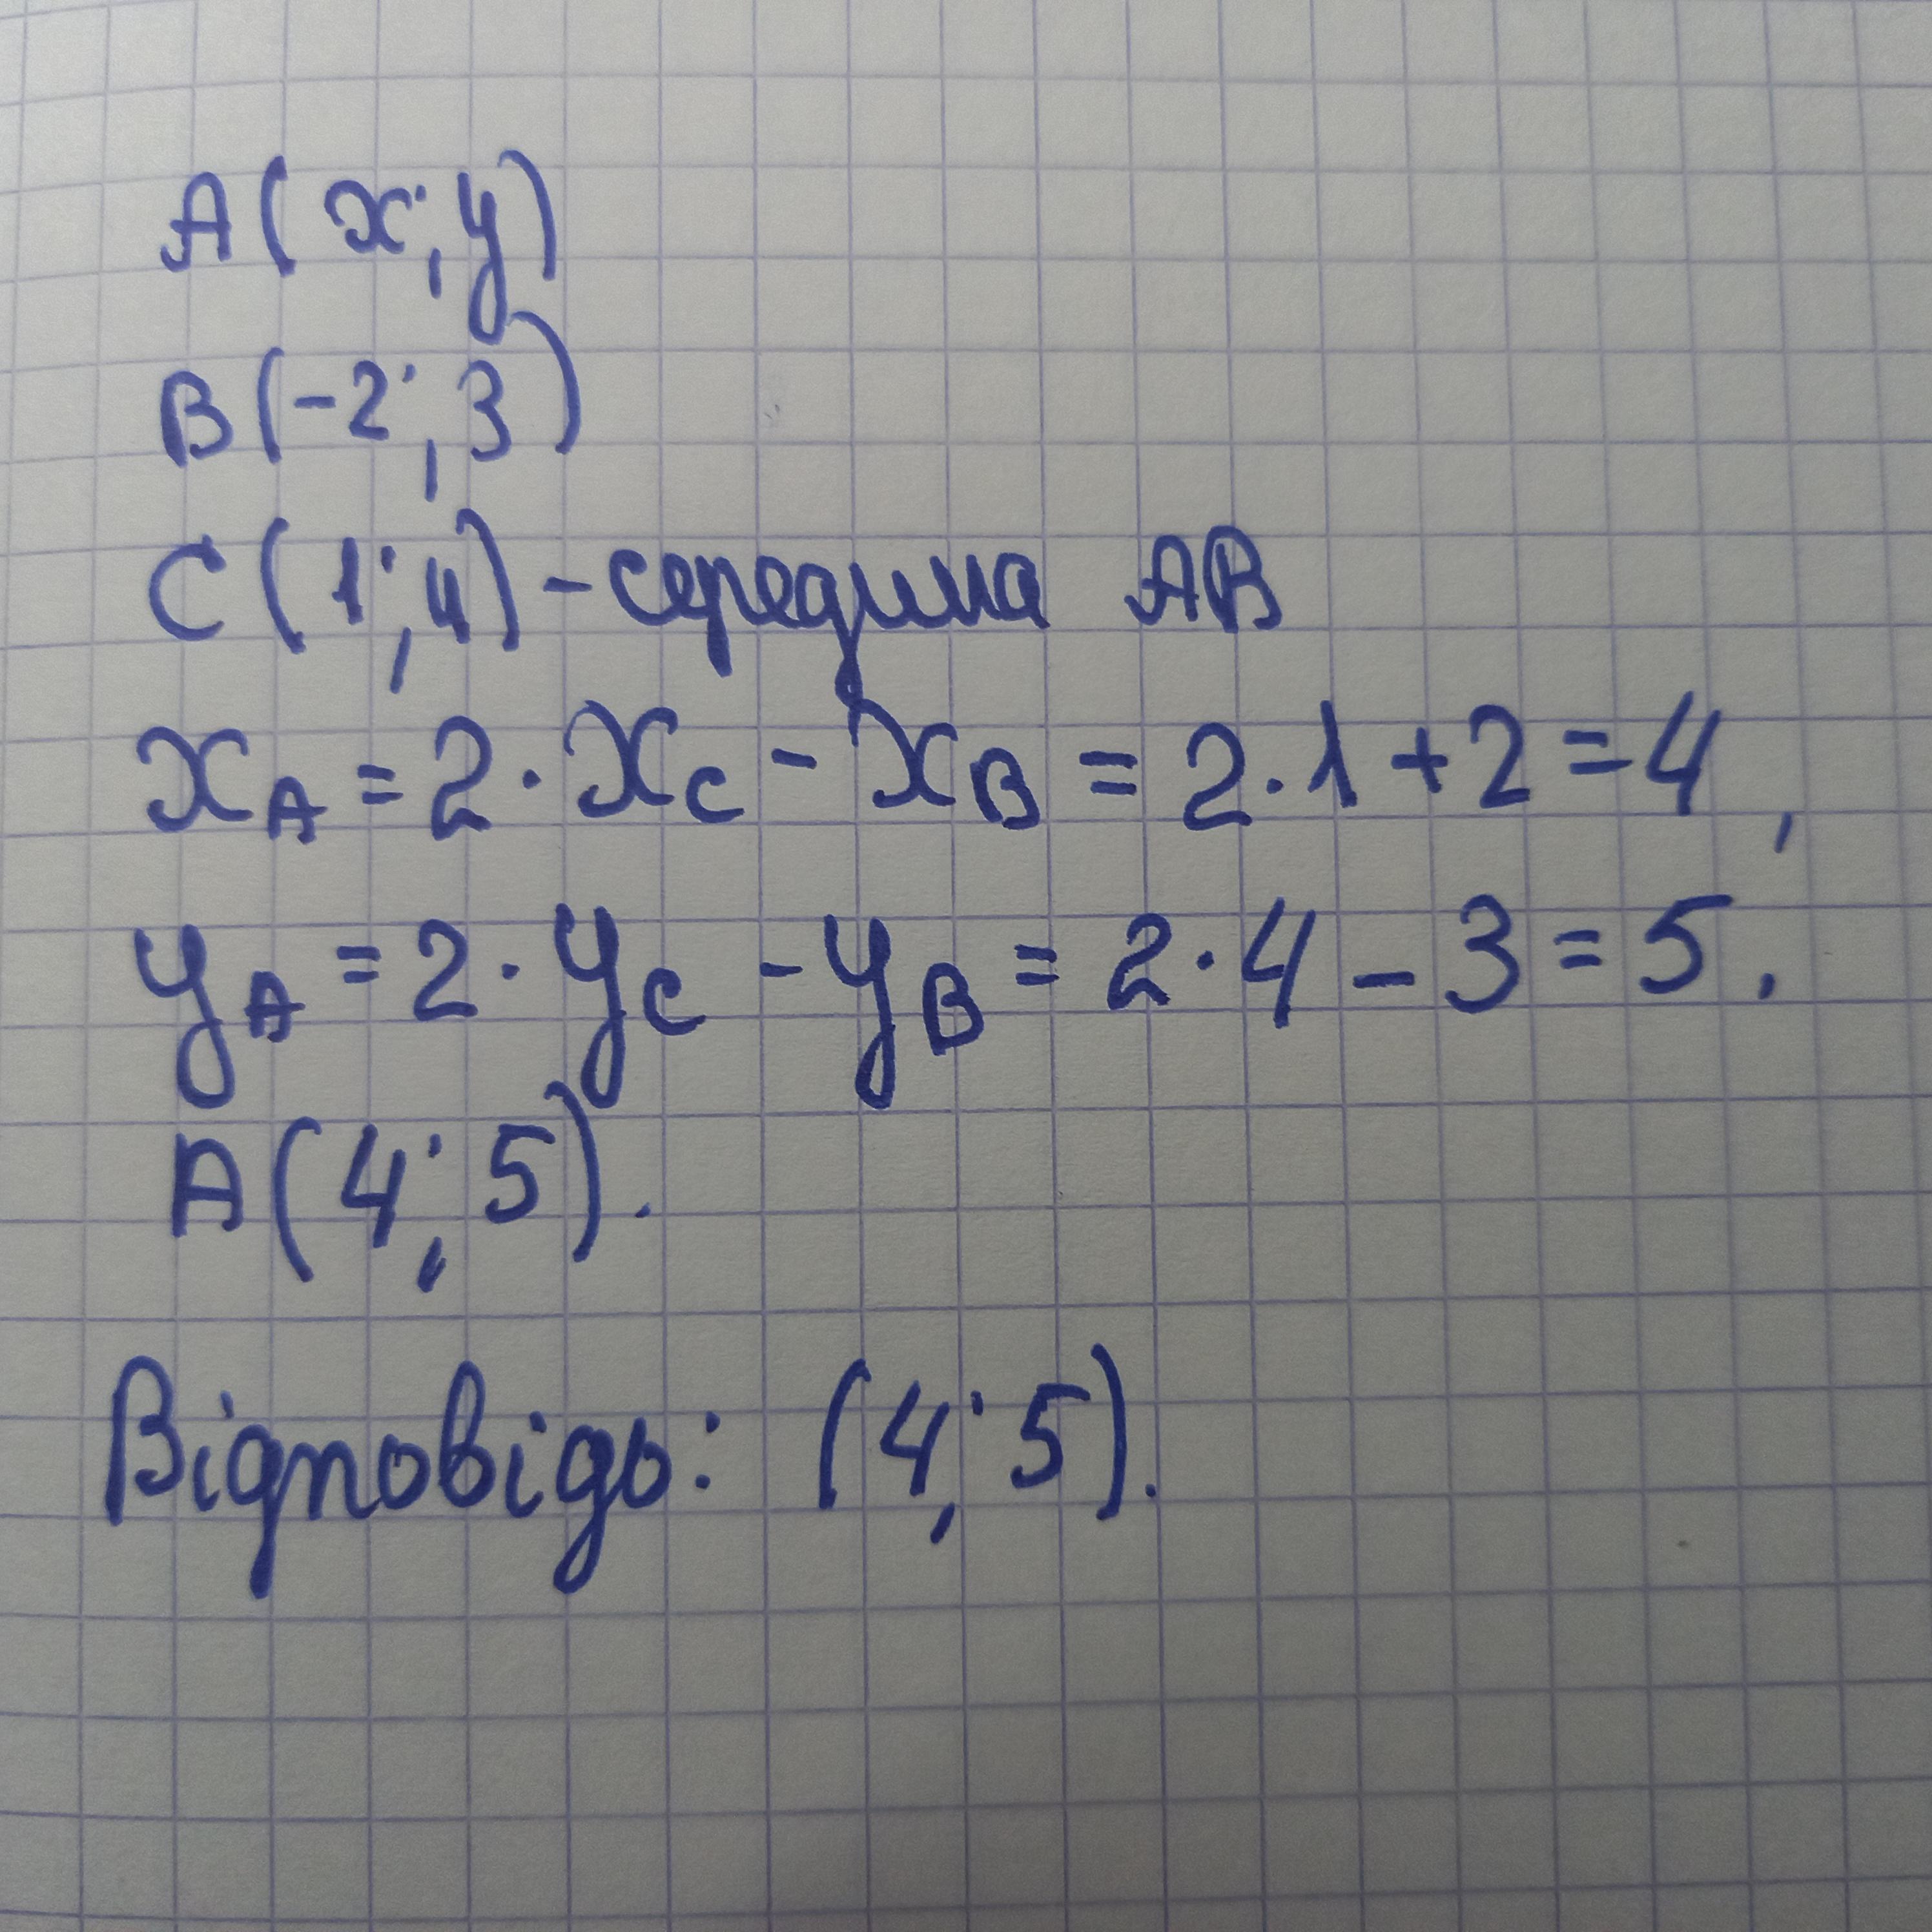 A(x; y)
B(-2; 3)
C(1; 4) - середина AB
x_A = 2·x_C - x_B = 2·1+2=4,
y_A = 2·y_C - y_B = 2·4-3=5.
A(4; 5).
Відповідь: (4; 5).